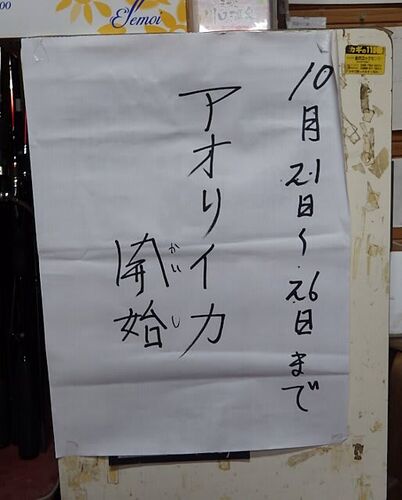 10月21日〜26日まで
アオリイカ
開始
かいし
Elemoi
カギの110番